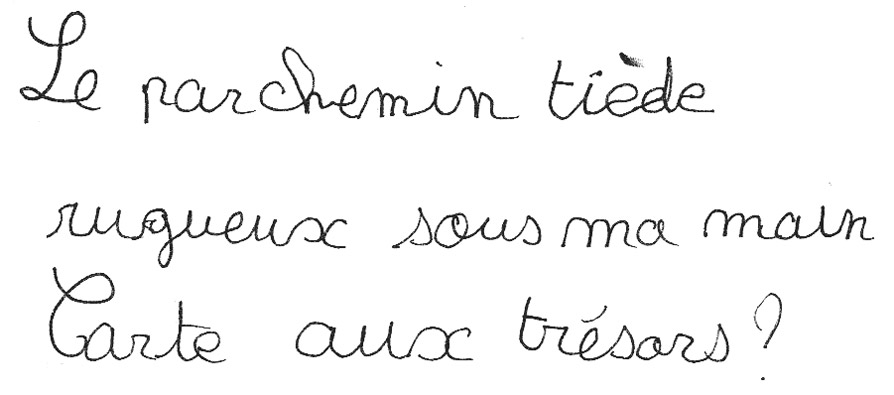 Le parchemin tiède
rugueux sous ma main
Carte aux trésors ?